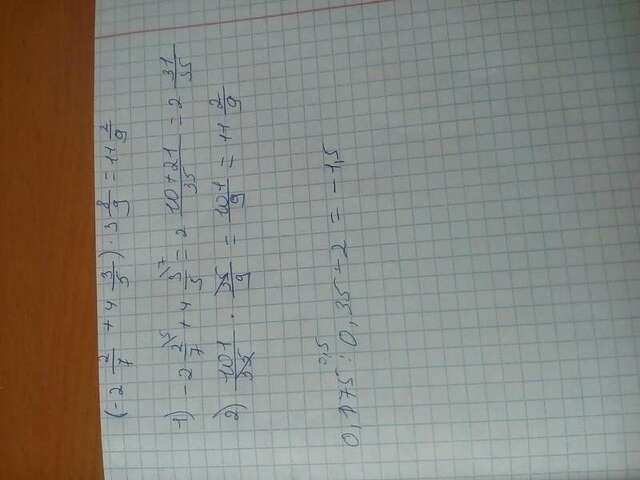 (-2 2/7 + 4 3/5) · 3 8/9 = 11 2/9
1) -2 2\5/7 + 4 3\7/5 = 2 10+21/35 = 2 31/35
2) 101/35 · 35/9 = 101/9 = 11 2/9
0,175 : 0,35 - 2 = -1,5
0,5